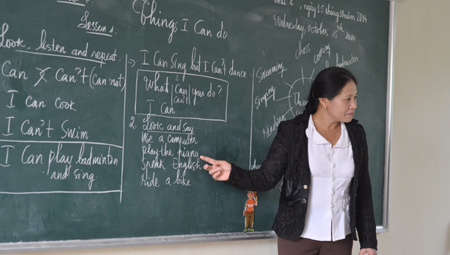 Things I Can do
Lesson 2
Look, listen and repeat
Can ≠ Can't (Can not)
I Can cook
I Can't swim
I Can play badminton
and sing
→ I Can sing but I can't dance
What can can't you do?
I Can
2. Look and say
use a computer
play the piano
Speak English
ride a bike
Wednesday, October
Swimming
cooking